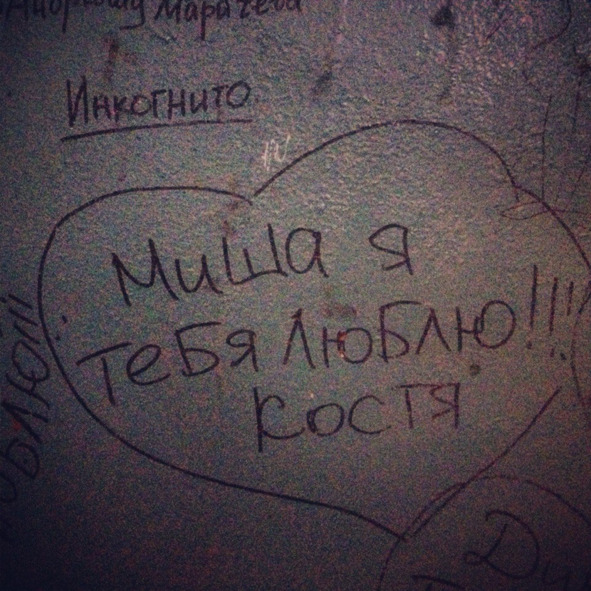 Марачева
Инкогнито
Миша я
тебя люблю!!!
Костя